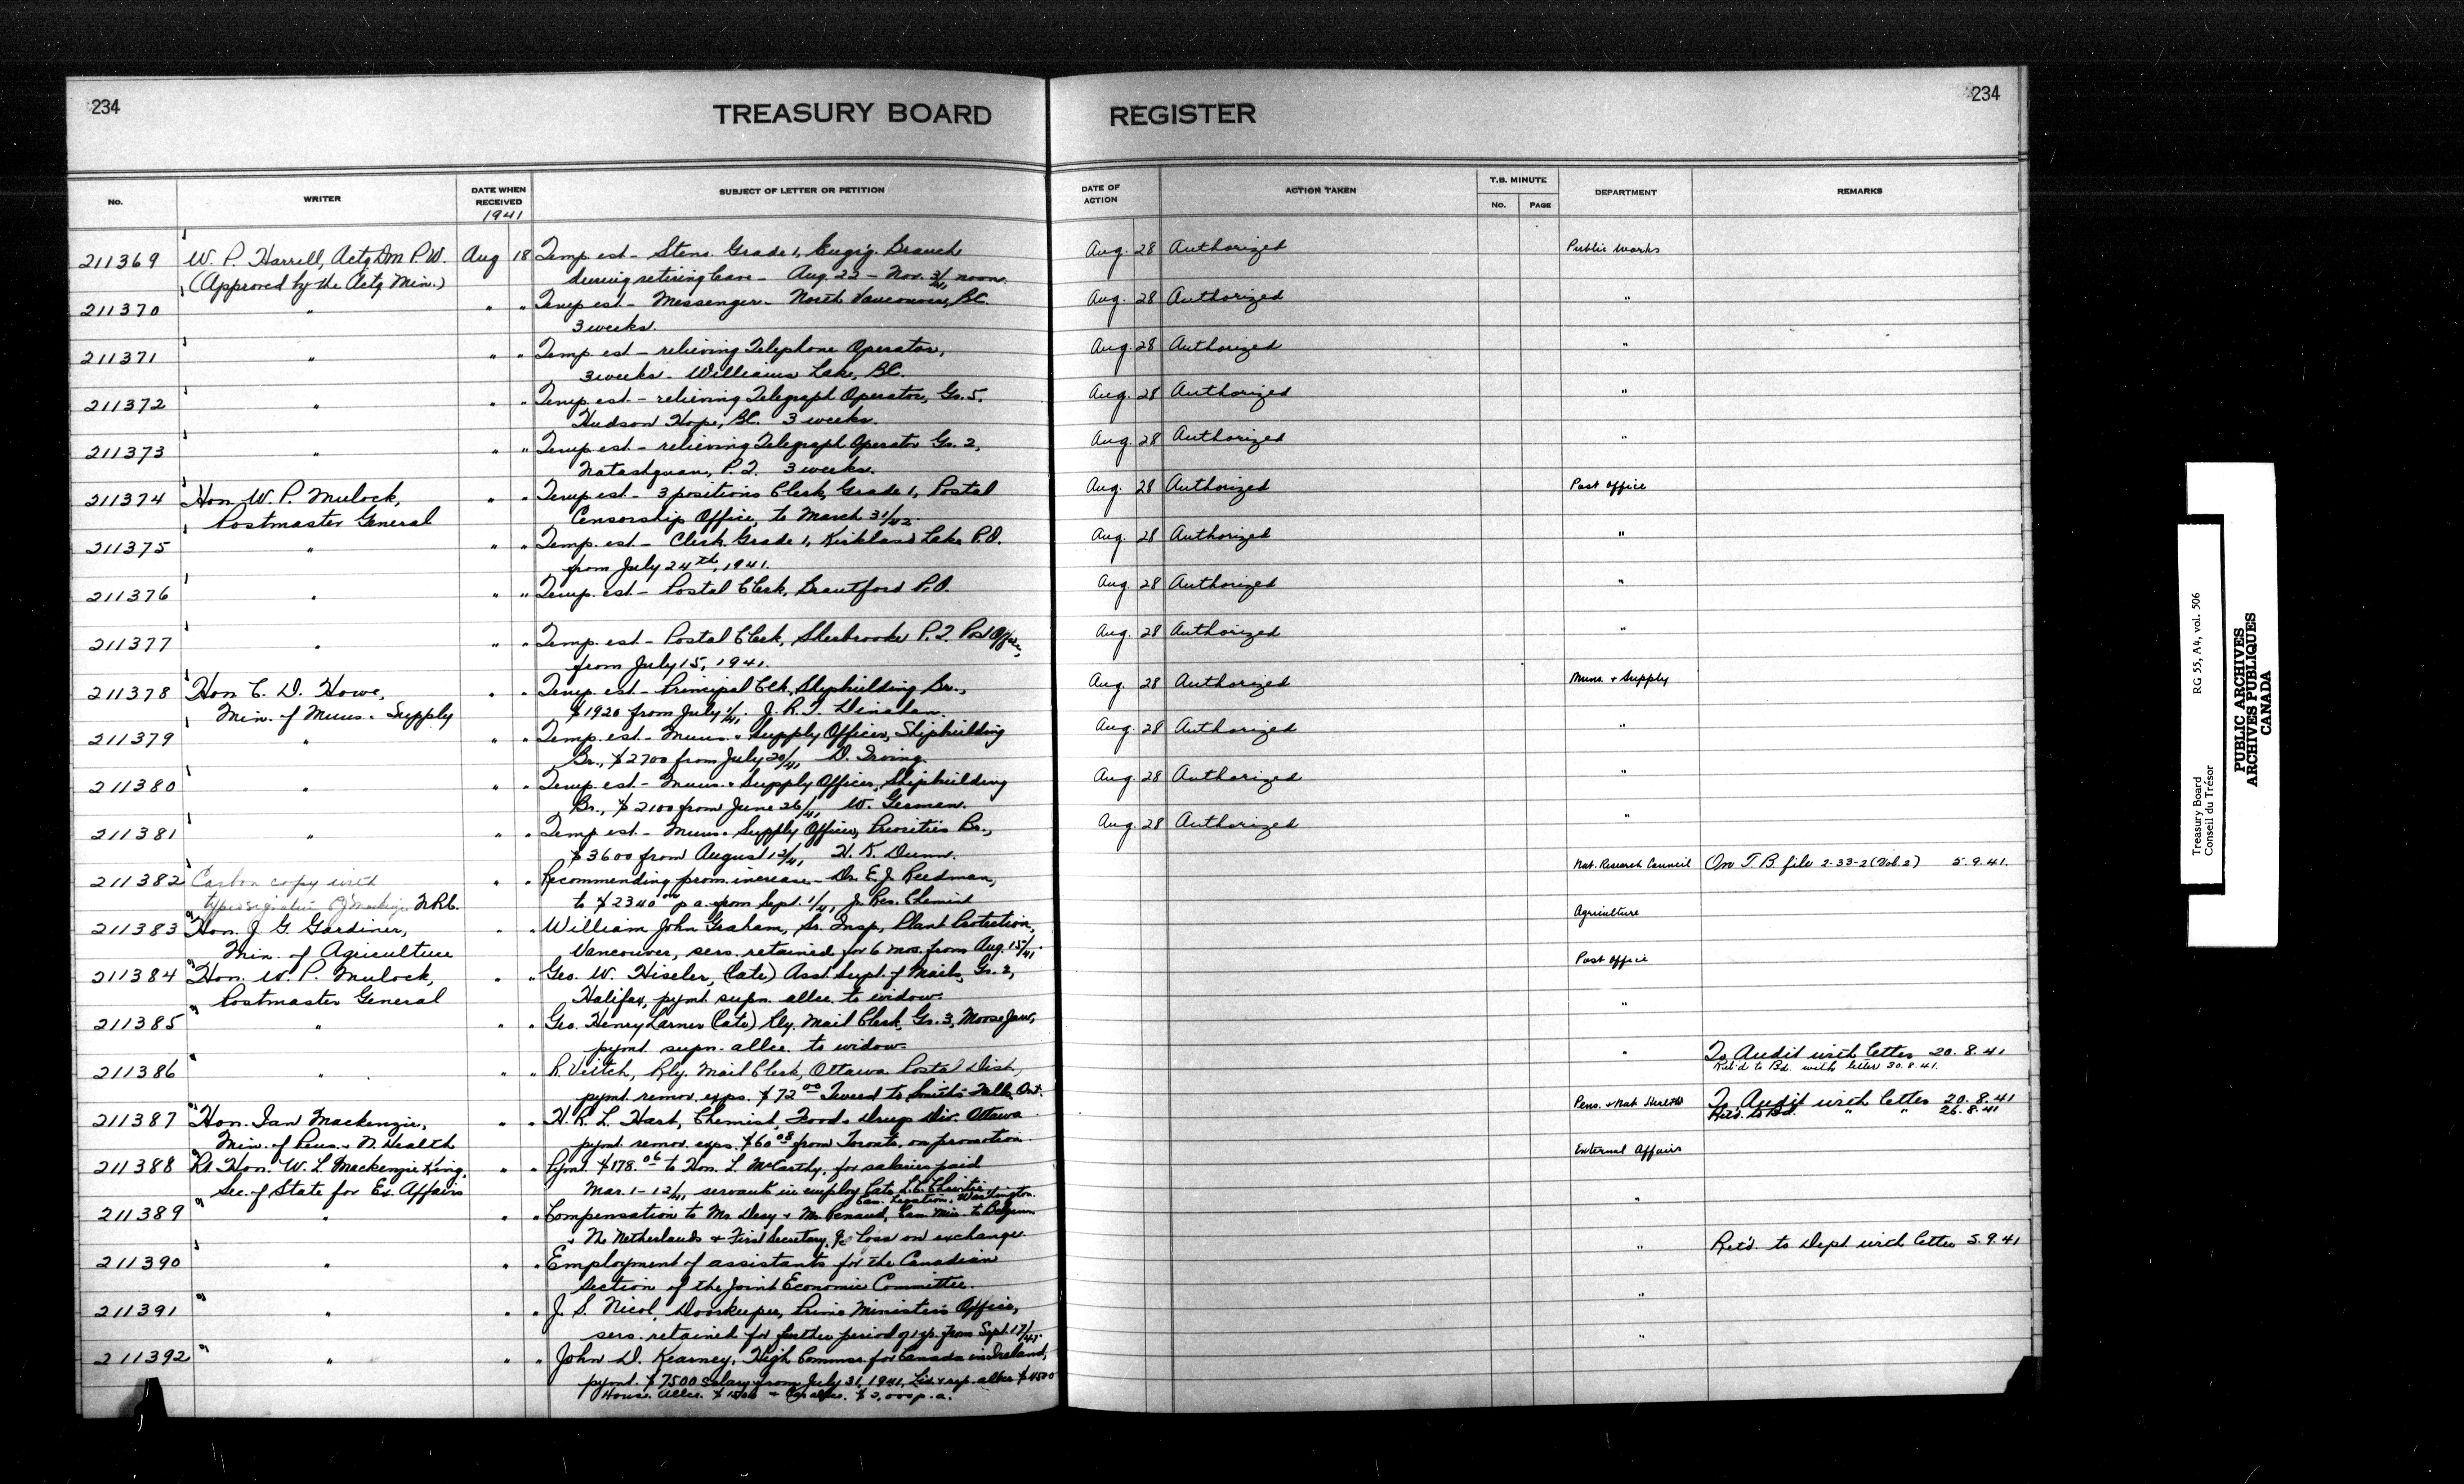 234
TREASURY BOARD REGISTER
234
No.
WRITER
DATE WHEN RECEIVED
1941
SUBJECT OF LETTER OR PETITION
DATE OF ACTION
ACTION TAKEN
T.B. MINUTE
No.
PAGE
DEPARTMENT
REMARKS
211369 W. P. Harrell, Actg Dm P.W. Aug 18 Temp. est - Steno. Grade 1, Eng'g. Branch Aug. 28 Authorized Public Works
(Approved by the Actg Min.) during retiring leave - Aug 22 - Nov. 3/41 noon.
211370 " " " Temp est. - Messenger - North Vancouver, BC. Aug. 28 Authorized "
3 weeks.
211371 " " " Temp. est - relieving Telephone Operator, Aug. 28 Authorized "
3 weeks - Williams Lake, BC.
211372 " " " Temp. est - relieving Telegraph Operator, Gr. 5, Aug. 28 Authorized "
Hudson Hope, BC. 3 weeks.
211373 " " " Temp. est - relieving Telegraph Operator Gr. 2, Aug. 28 Authorized "
Natashquan, P.Q. 3 weeks.
211374 Hon. W. P. Mulock, " " Temp est - 3 positions Clerk, Grade 1, Postal Aug. 28 Authorized Post Office
Postmaster General Censorship Office, to March 31/42.
211375 " " " Temp. est - Clerk Grade 1, Kirkland Lake P.O. Aug. 28 Authorized "
from July 24th, 1941.
211376 " " " Temp. est - Postal Clerk, Brantford P.O. Aug. 28 Authorized "
211377 " " " Temp. est - Postal Clerk, Sherbrooke P.Q. Post Office, Aug. 28 Authorized "
from July 15, 1941.
211378 Hon C. D. Howe, " " Temp est - Principal Clk, Shipbuilding Br., Aug. 28 Authorized Muns. + Supply
Min. of Muns. + Supply $1920 from July 1/41. J. R. T.
211379 " " " Temp. est - Muns. + Supply Officer, Shipbuilding Aug. 28 Authorized "
Br., $2700 from July 20/41, D. Irving.
211380 " " " Temp est - Muns. + Supply Officer, Shipbuilding Aug. 28 Authorized "
Br., $2100 from June 26/41, W. German.
211381 " " " Temp est - Muns. + Supply Officer, Priorities Br., Aug. 28 Authorized "
$3600 from August 12/41, H. K. Dunn.
211382 Carbon copy with " " Recommending prom. increase - Dr. E. J. Reedman, Nat. Research Council On T.B file 2-33-2 (Vol. 2) 5.9.41.
typed signature Mackenzie N.R.C. to $2340 00 p a from Sept. 1/41, Jr. Res. Chemist
211383 Hon. J. G. Gardiner, " " William John Graham, Sr. Insp., Plant Protection, Agriculture
Min. of Agriculture Vancouver, sers. retained for 6 mos. from Aug. 15/41.
211384 Hon. W. P. Mulock, " " Geo. W. Hiseler, (late) Asst. Supt. of Mails, Gr. 2, Post Office
Postmaster General Halifax, pymt. supn. allce. to widow.
211385 " " " Geo. Henry Larner (late) Rly. Mail Clerk, Gr. 3, Moose Jaw, "
pymt. supn. allce. to widow.
211386 " " " R Veitch, Rly. Mail Clerk, Ottawa Postal Dist, " To Audit with letter 20.8.41
Ret'd to Bd. with letter 30.8.41.
pymt. remov. exps. $72 00 to Smiths Falls, Ont.
211387 Hon. Ian Mackenzie, " " H. R. L. Hart, Chemist, Food + Drugs Div. Ottawa Pens. + Nat. Health To Audit with letter 20.8.41
Ret'd. to Bd. " " 26.8.41
Min. of Pens. + N. Health pymt. remov. exps. $60 08 from Toronto, on promotion.
211388 Rt Hon. W. L. Mackenzie King, " " Pymt. $178.06 to Hon. L. McCarthy, for salaries paid External Affairs
Sec. of State for Ex. Affairs Mar. 1 - 12/41 servants in employ late L. C. Christie
Can. Legation, Washington.
211389 " " " Compensation to Mr. Desy + Mr. Renaud, Can. Min. to Belgium "
+ The Netherlands + First Secretary, for loss on exchange.
211390 " " " Employment of assistants for the Canadian " Ret'd. to Dept. with letter 5.9.41
Section of the Joint Economic Committee.
211391 " " " J. S. Nicol, Doorkeeper, Prime Minister's Office, "
sers. retained for further period of 1 yr. from Sept. 17/
211392 " " " John D. Kearney, High Commsr. for Canada in Ireland, "
pymt. $7500 salary from July 31, 1941, Liv. + rep. allce $4500
House. Allce. $1500 + Car allce. $2,000 p.a.
Treasury Board RG 55, A4, vol. 506
Conseil du Trésor
PUBLIC ARCHIVES
ARCHIVES PUBLIQUES
CANADA